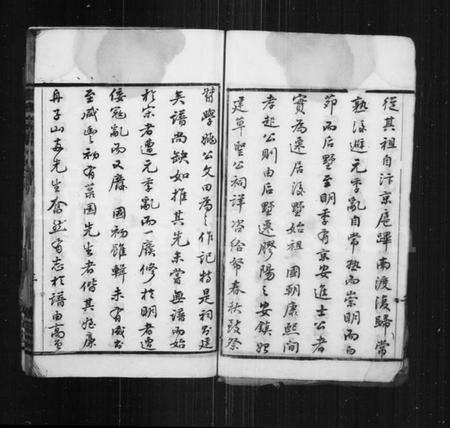 從其祖自汴京扈蹕南渡後歸常
熟後避元季亂自常熟而崇明而白
茆而居墅至明季有京安進士公者
實為遷居後墅始祖國朝康熙間
孝起公則由居墅遷膠陽之安鎮
建草聖公祠詳咨給帑春秋致祭
督學姚公文田為之作記特是祠可建
矣譜尚缺如推其先未嘗無譜而始
於宋者遭元季亂而一廢修於明者遭
倭寇亂而又廢國初雖輯未有成書
至咸豐初有菜園先生者偕其姪康
舟子山安先生奮然有志於譜由高曾